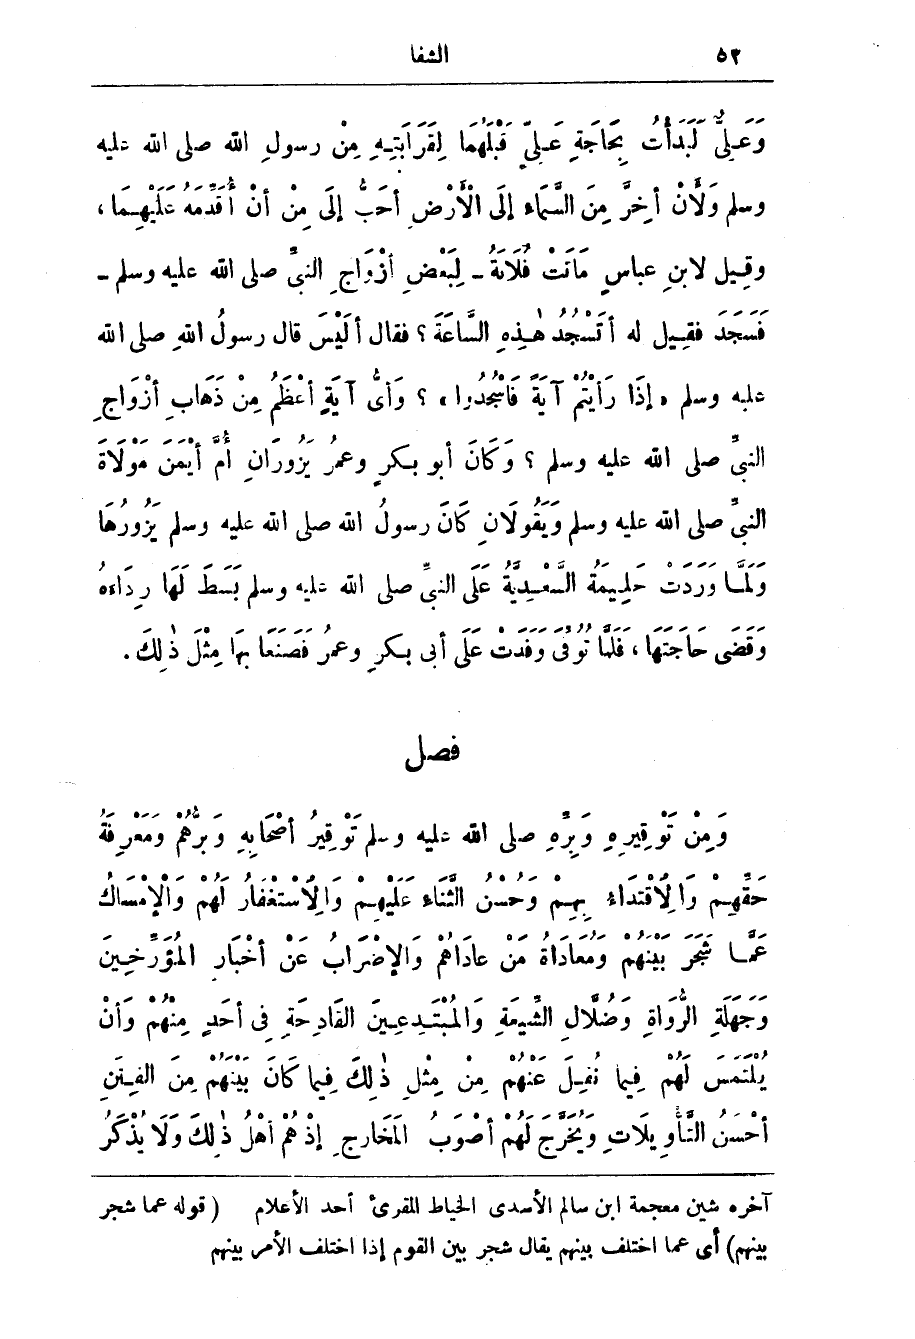 ٥٣ الشفا
وَعَلِيٌّ لَبَدَأْتُ بِحَاجَةِ عَلِيٍّ قَبْلَهُمَا لِقَرَابَتِهِ مِنْ رسولِ الله صلى الله عليه
وسلم وَلَأَنْ أخِرَّ مِنَ السَّمَاءِ إلَى الْأَرْضِ أحَبُّ إلَى مِنْ أنْ أُقَدِّمَهُ عَلَيْهِمَا،
وقِيل لابنِ عباسٍ مَاتَتْ فُلَانَةُ - لِبَعْضِ أزْوَاجِ النبيِّ صلى الله عليه وسلم -
فَسَجَدَ فقيل له أتَسْجُدُ هٰذِهِ السَّاعَةَ ؟ فقال ألَيْسَ قال رسولُ اللهِ صلى الله
عليه وسلم «إذَا رَأَيْتُمْ آيَةً فَاسْجُدُوا» ؟ وَأىُّ آيَةٍ أعْظَمُ مِنْ ذَهَابِ أزْوَاجِ
النبيِّ صلى الله عليه وسلم ؟ وَكَانَ أبو بكرٍ وعمرُ يَزُورَانِ أُمَّ أيْمَنَ مَوْلَاةَ
النبيِّ صلى الله عليه وسلم وَيَقُولَانِ كَانَ رسولُ الله صلى الله عليه وسلم يَزُورُهَا
وَلَمَّا وَرَدَتْ حَلِيمَةُ السَّعْدِيَّةُ عَلَى النبيِّ صلى الله عليه وسلم بَسَطَ لَهَا رِدَاءهُ
وَقَضَى حَاجَتَهَا، فَلَمَّا تُوُفِّىَ وَفَدَتْ عَلَى أبى بكرٍ وعمرُ فَصَنَعَا بِهَا مِثْلَ ذٰلِكَ.
فصل
وَمِنْ تَوْقِيرِهِ وَبِرِّهِ صلى الله عليه وسلم تَوْقِيرُ أصْحَابِهِ وَبِرُّهُمْ وَمَعْرِفَةُ
حَقِّهِمْ وَالِاقْتِدَاءُ بِهِمْ وَحُسْنُ الثَّنَاءِ عَلَيْهِمْ وَالِاسْتِغْفَارُ لَهُمْ وَالْإمْسَاكُ
عَمَّا شَجَرَ بَيْنَهُمْ وَمُعَادَاةُ مَنْ عَادَاهُمْ وَالإضْرَابُ عَنْ أخْبَارِ المُؤَرِّخِينَ
وَجَهَلَةِ الرُّوَاةِ وَضُلَّالِ الشِّيعَةِ وَالمُبْتَدِعِينَ القَادِحَةِ فِى أحَدٍ مِنْهُمْ وَأنْ
يُلْتَمَسَ لَهُمْ فِيمَا نُقِلَ عَنْهُمْ مِنْ مِثْلِ ذٰلِكَ فِيمَا كَانَ بَيْنَهُمْ مِنَ الفِتَنِ
أحْسَنُ التَّأْوِيلَاتِ وَيُخَرَّجَ لَهُمْ أصْوَبُ المَخَارِجِ إذْ هُمْ أهْلُ ذٰلِكَ وَلَا يُذْكَرُ
آخره شين معجمة ابن سالم الأسدى الخياط المقرئ أحد الأعلام (قوله عما شجر
بينهم) أى عما اختلف بينهم يقال شجر بين القوم إذا اختلف الأمر بينهم